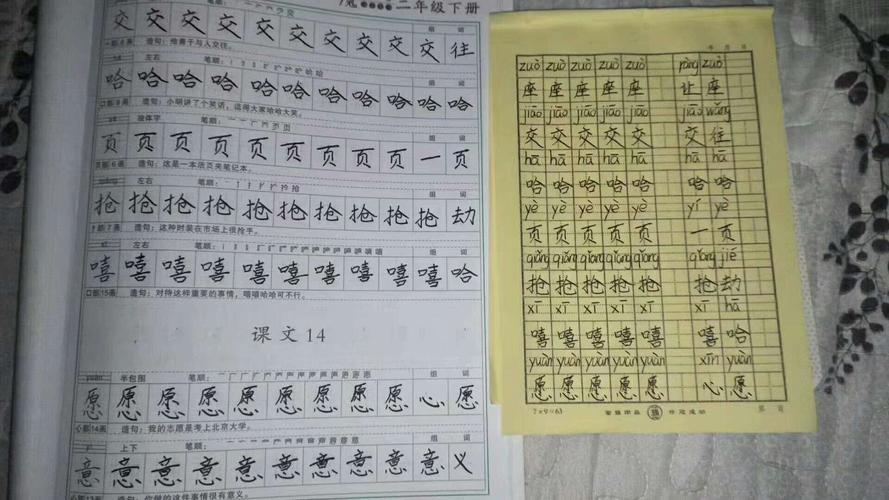 二年级下册
组 词
交 交 交 交 交 交 交 交 交 交 往
亠部6画 造句:他善于与人交往。
左右 笔顺: 组 词
哈 哈 哈 哈 哈 哈 哈 哈 哈 哈 哈
口部9画 造句:小明讲了个笑话,逗得大家哈哈大笑。
独体字 笔顺: 组 词
页 页 页 页 页 页 页 页 页 一 页
页部6画 造句:这是一本活页夹笔记本。
左右 笔顺: 组 词
抢 抢 抢 抢 抢 抢 抢 抢 抢 抢 劫
扌部7画 造句:这种时装在市场上很抢手。
左右 笔顺: 组 词
嘻 嘻 嘻 嘻 嘻 嘻 嘻 嘻 嘻 嘻 哈
口部15画 造句:对待这样重要的事情,嘻嘻哈哈可不行。
课文14
yuàn 半包围 笔顺: 组 词
愿 愿 愿 愿 愿 愿 愿 愿 愿 心 愿
心部14画 造句:我的志愿是考上北京大学。
上下 笔顺: 组 词
意 意 意 意 意 意 意 意 意 意 义
心部13画 造句:你做的这件事情很有意义。
年 月 日
zuò zuò zuò zuò zuò ràng zuò
座 座 座 座 座 让 座
jiāo jiāo jiāo jiāo jiāo jiāo wǎng
交 交 交 交 交 交 往
hā hā hā hā hā hā hā
哈 哈 哈 哈 哈 哈 哈
yè yè yè yè yè yí yè
页 页 页 页 页 一 页
qiǎng qiǎng qiǎng qiǎng qiǎng qiǎng jié
抢 抢 抢 抢 抢 抢 劫
xī xī xī xī xī xī hā
嘻 嘻 嘻 嘻 嘻 嘻 哈
yuàn yuàn yuàn yuàn yuàn xīn yuàn
愿 愿 愿 愿 愿 心 愿